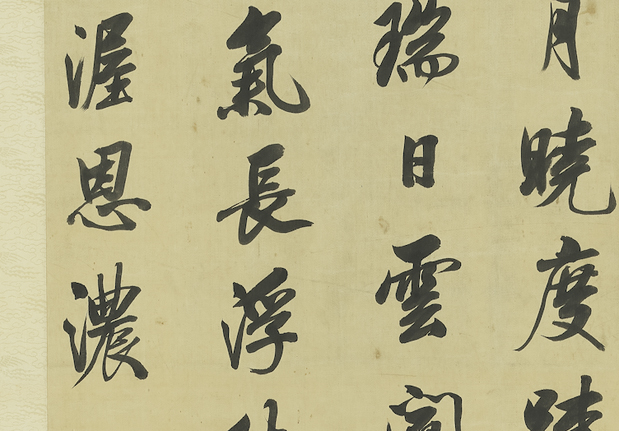 月曉度
瑞日雲
氣長浮
渥恩濃